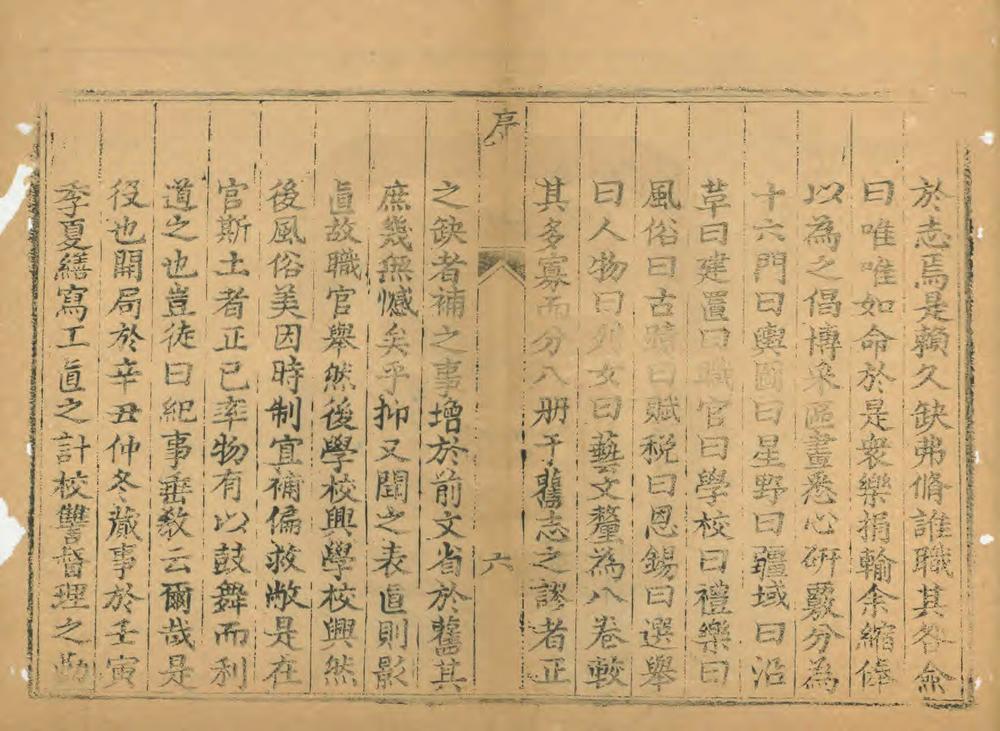 於志焉是賴久缺弗脩誰職其咎僉
曰唯唯如命於是衆樂捐輸余縮俸
以為之倡博采區畫悉心研覈分為
十六門曰輿圖曰星野曰疆域曰沿
革曰建置曰職官曰學校曰禮樂曰
風俗曰古蹟曰賦稅曰恩錫曰選舉
曰人物曰列女曰藝文釐為八卷較
其多寡而分八册于舊志之謬者正
序
六
之缺者補之事增於前文省於舊其
庶幾無憾矣乎抑又聞之表直則影
直故職官舉然後學校興學校興然
後風俗美因時制宜補偏救敝是在
官斯土者正已率物有以鼓舞而利
道之也豈徒曰紀事垂教云爾哉是
役也開局於辛丑仲冬蕆事於壬寅
季夏繕寫工直之計校讐督理之勤